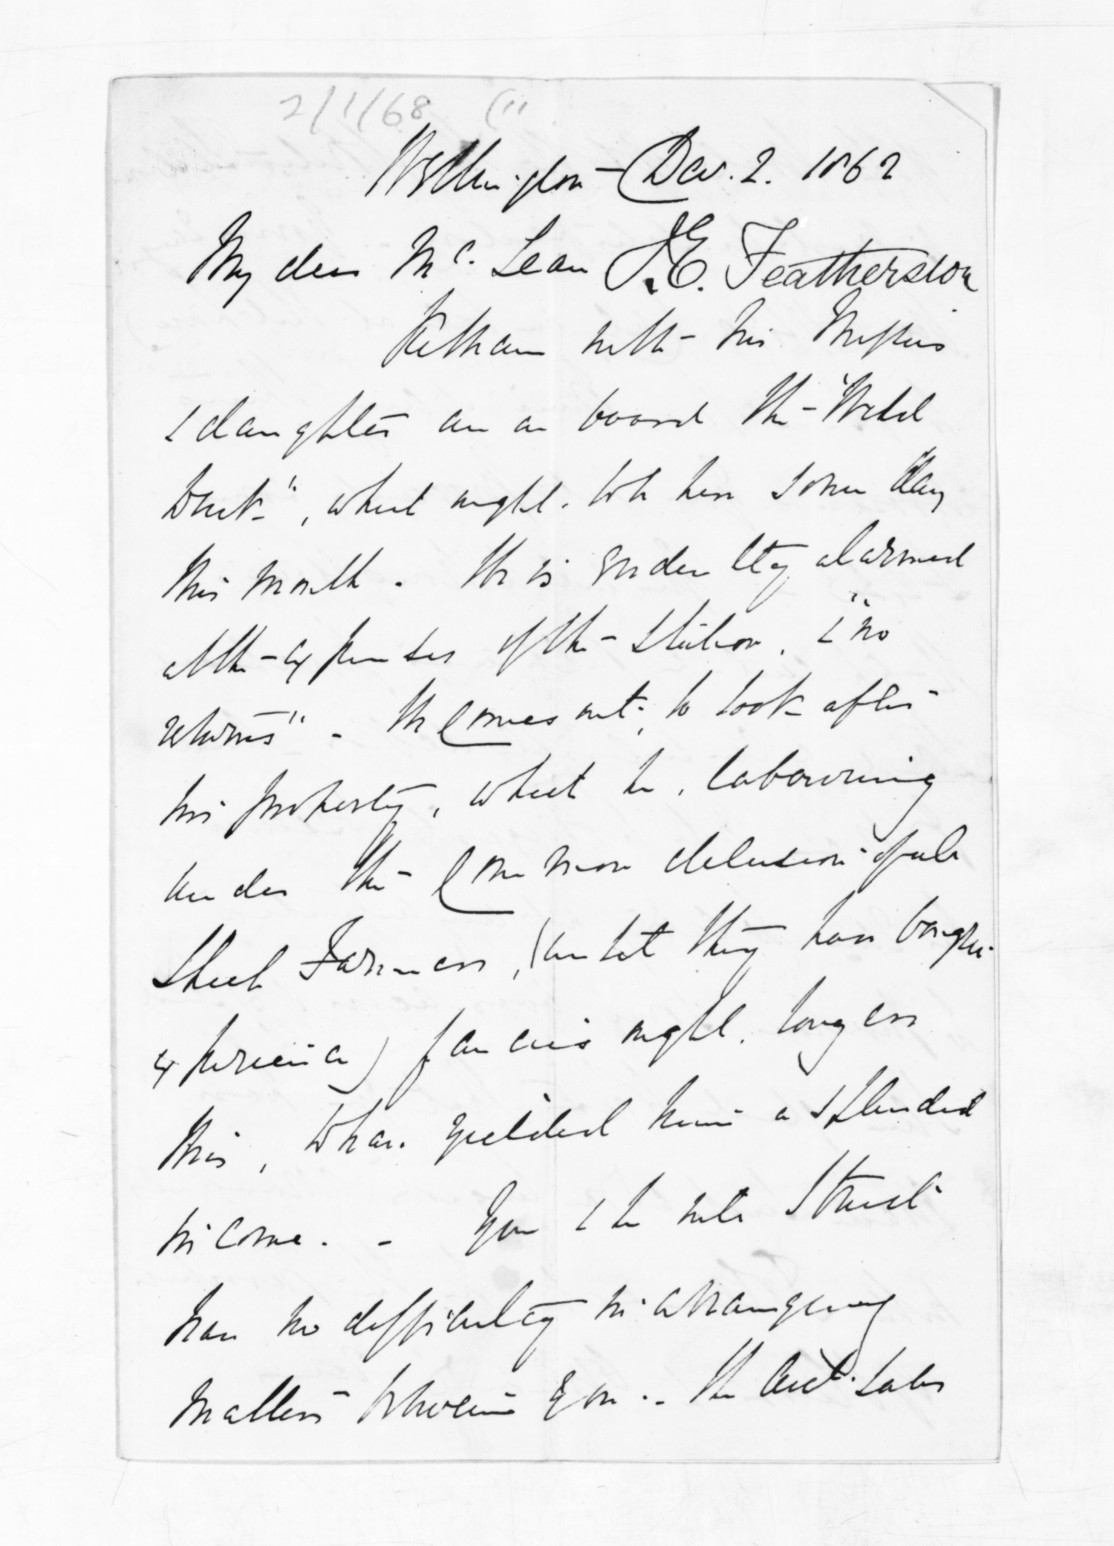 2/1/68
Wellington - Dec. 2. 1862
My dear McLean I.E. Featherston
with his Missus
& daughter are on board the "Wild
Duck", which ought to be here some day
this month. He is evidently alarmed
at the expenses of the Station, & "no
returns". He comes out, to look after
his property, which he, labouring
under the common delusion of all
Sheep Farmers, (until they have bought
experience) fancies ought, long ere
this, to have yielded him a splendid
income. - You & he will I trust
have no difficulty in arranging
matters between you. - The Land Sales